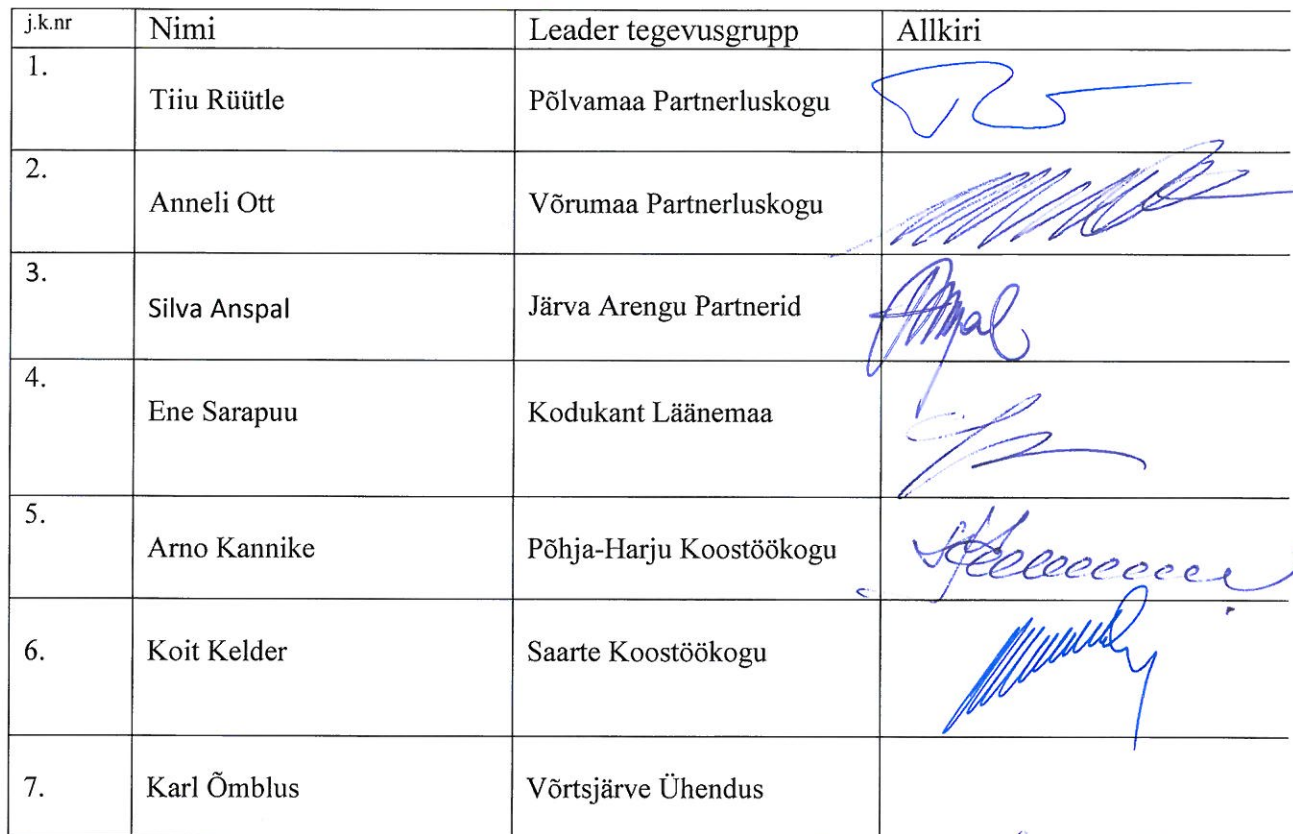 j.k.nr Nimi Leader tegevusgrupp Allkiri
1. Tiiu Rüütle Põlvamaa Partnerluskogu
2. Anneli Ott Võrumaa Partnerluskogu
3. Silva Anspal Järva Arengu Partnerid
4. Ene Sarapuu Kodukant Läänemaa
5. Arno Kannike Põhja-Harju Koostöökogu
6. Koit Kelder Saarte Koostöökogu
7. Karl Õmblus Võrtsjärve Ühendus